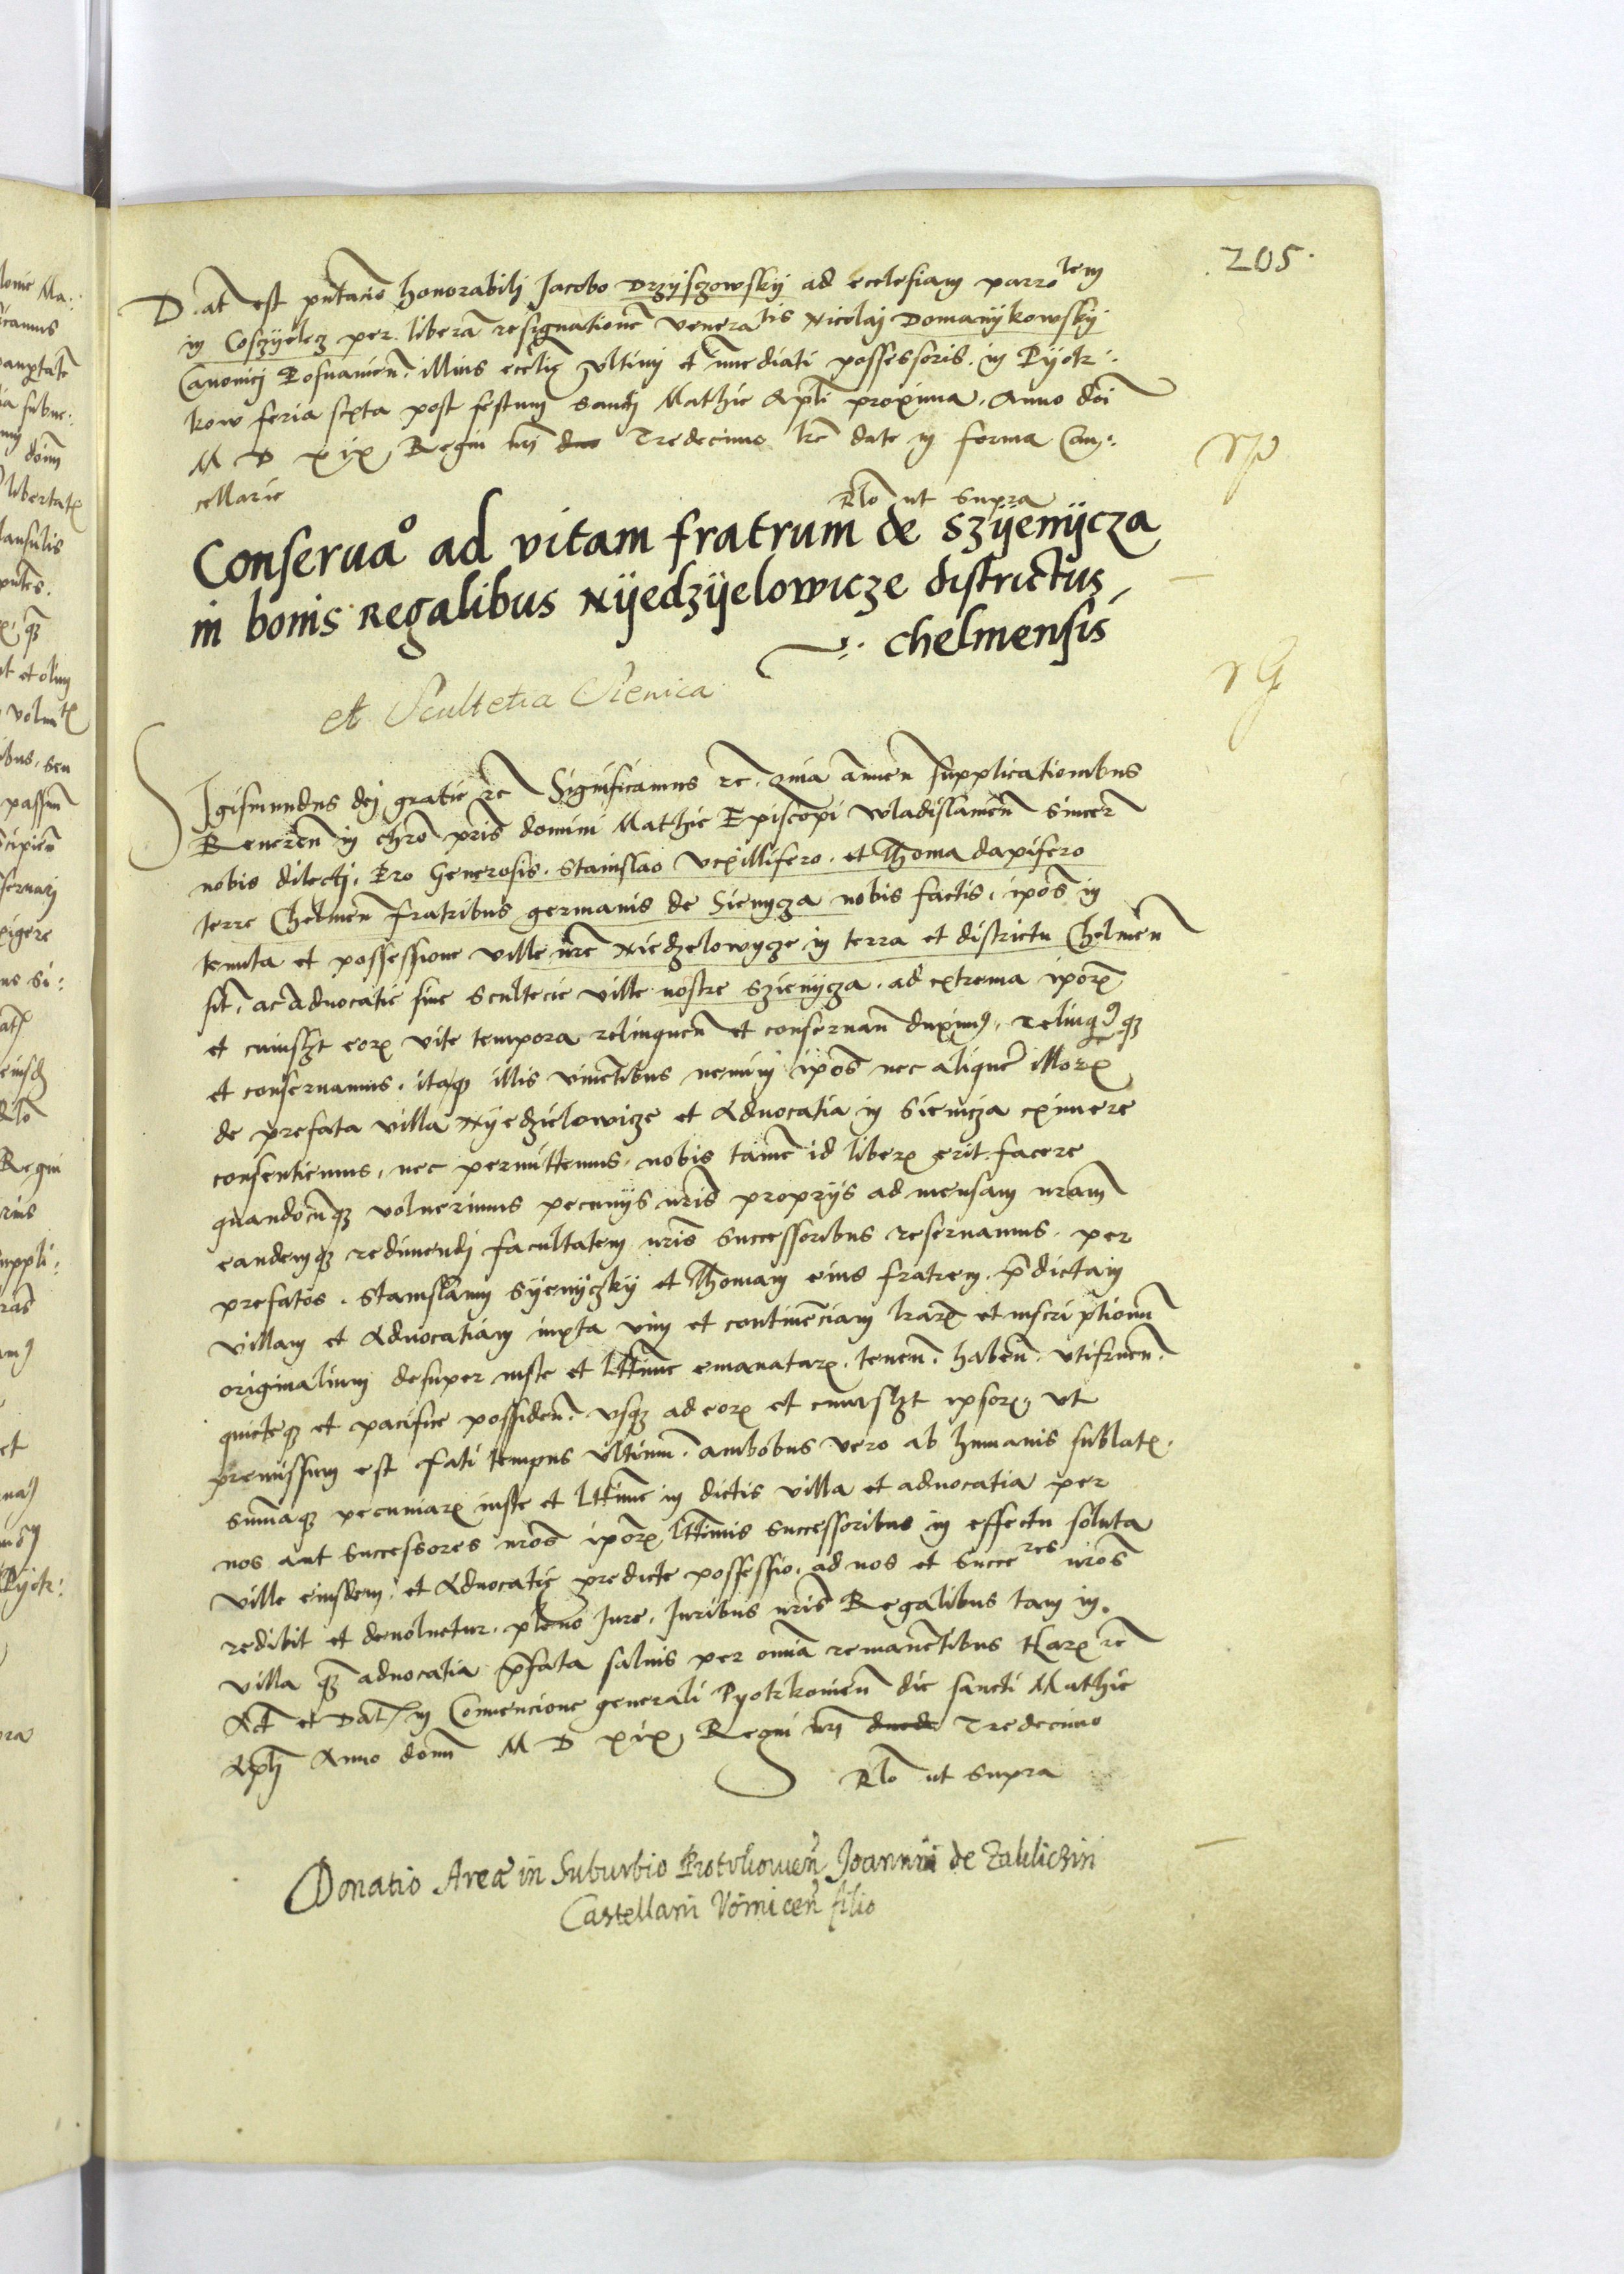 205.
Dat est pntacio honorabili Jacobo Drzyszowsky ad ecclesiam parrotem
in Cosczyelecz per liberā resignationē venera tis Nicolai Domanykowsky
Canonici Posnanien̄. illius ecclie ultimi et imediati possessoris. in Pyotr:
kow feria sexta post festum sancti Mathie Apli proxima. Anno dni
M D xix Regni nri Tredecimo lre date in forma Can:
cellarie
Rlo ut supra
Conseruao ad vitam fratrum de Szyenycza
in bonis Regalibus Nyedzyelowicze districtus
chelmensis
et Scultetia Sienica
Sigismundus dei gratie rc Significamus rc. Quia annuen̄ supplicationibus
Reueren̄ in chro pris domini Mathie Episcopi Wladislauien̄ sincere
nobis dilecti, Pro Generosis. Stanislao Vexillifero. et Thoma dapifero
terre Chelmen̄ fratribus germanis de Sienycza nobis factis. ipos in
tenuta et possessione ville nre Niedzelowycze in terra et districtu Chelmen̄
sit. ac Aduocatie siue scultecie ville nostre Szienycza. ad extrema ipor
et cuiuslzt eor vite tempora relinquen̄ et conseruan̄ duxim9, relinq9qz
et conseruamus. itaqz illis viuetibus nemini ipos nec aliquē illor
de prefata villa Nyedzielowicze et Aduocatia in Sienicza eximere
consentiemus, nec permittemus. nobis tamē id liber erit facere
quandocūqz voluerimus pecunijs nris proprijs ad mensam nram
eandemqz redimendi facultatem nris successoribus reseruamus. per
prefatos. Stanislaum Syenyczky et Thomam eius fratrem. pdictam
villam et Aduocatiam iuxta vim et continēciam lrar et inscriptionū
originalium desuper iuste et lttime emanatar. tenen̄. haben̄. vtifruen̄.
quieteqz et pacifice possiden̄. vsqz ad eor et cuiuslzt ipsor, vt
premissum est fati tempus vltimū. ambobus vero ab humanis sublat.
summaqz pecuniar iuste et lttime in dictis villa et aduocatia per
nos aut successores nros ipor lttimis successoribus in effectu soluta
ville eiusdem et Aduocatie predicte possessio. ad nos et succe res nros
redibit et deuoluetur. pleno Jure. Juribus nris Regalibus tam in
villa qz aduocatia pfata saluis per omnia remanētibus Har rc
Act et Dat in Conuencione generali Pyotrkouien̄ die sancti Mathie
Apli Anno domi M D xix, Regni nri Tredecimo
Rlo ut supra
Donatio Areae in Suburbio Piotrkouien̄ Joanni de Zakliczin
Castellani Voinicen̄ filio